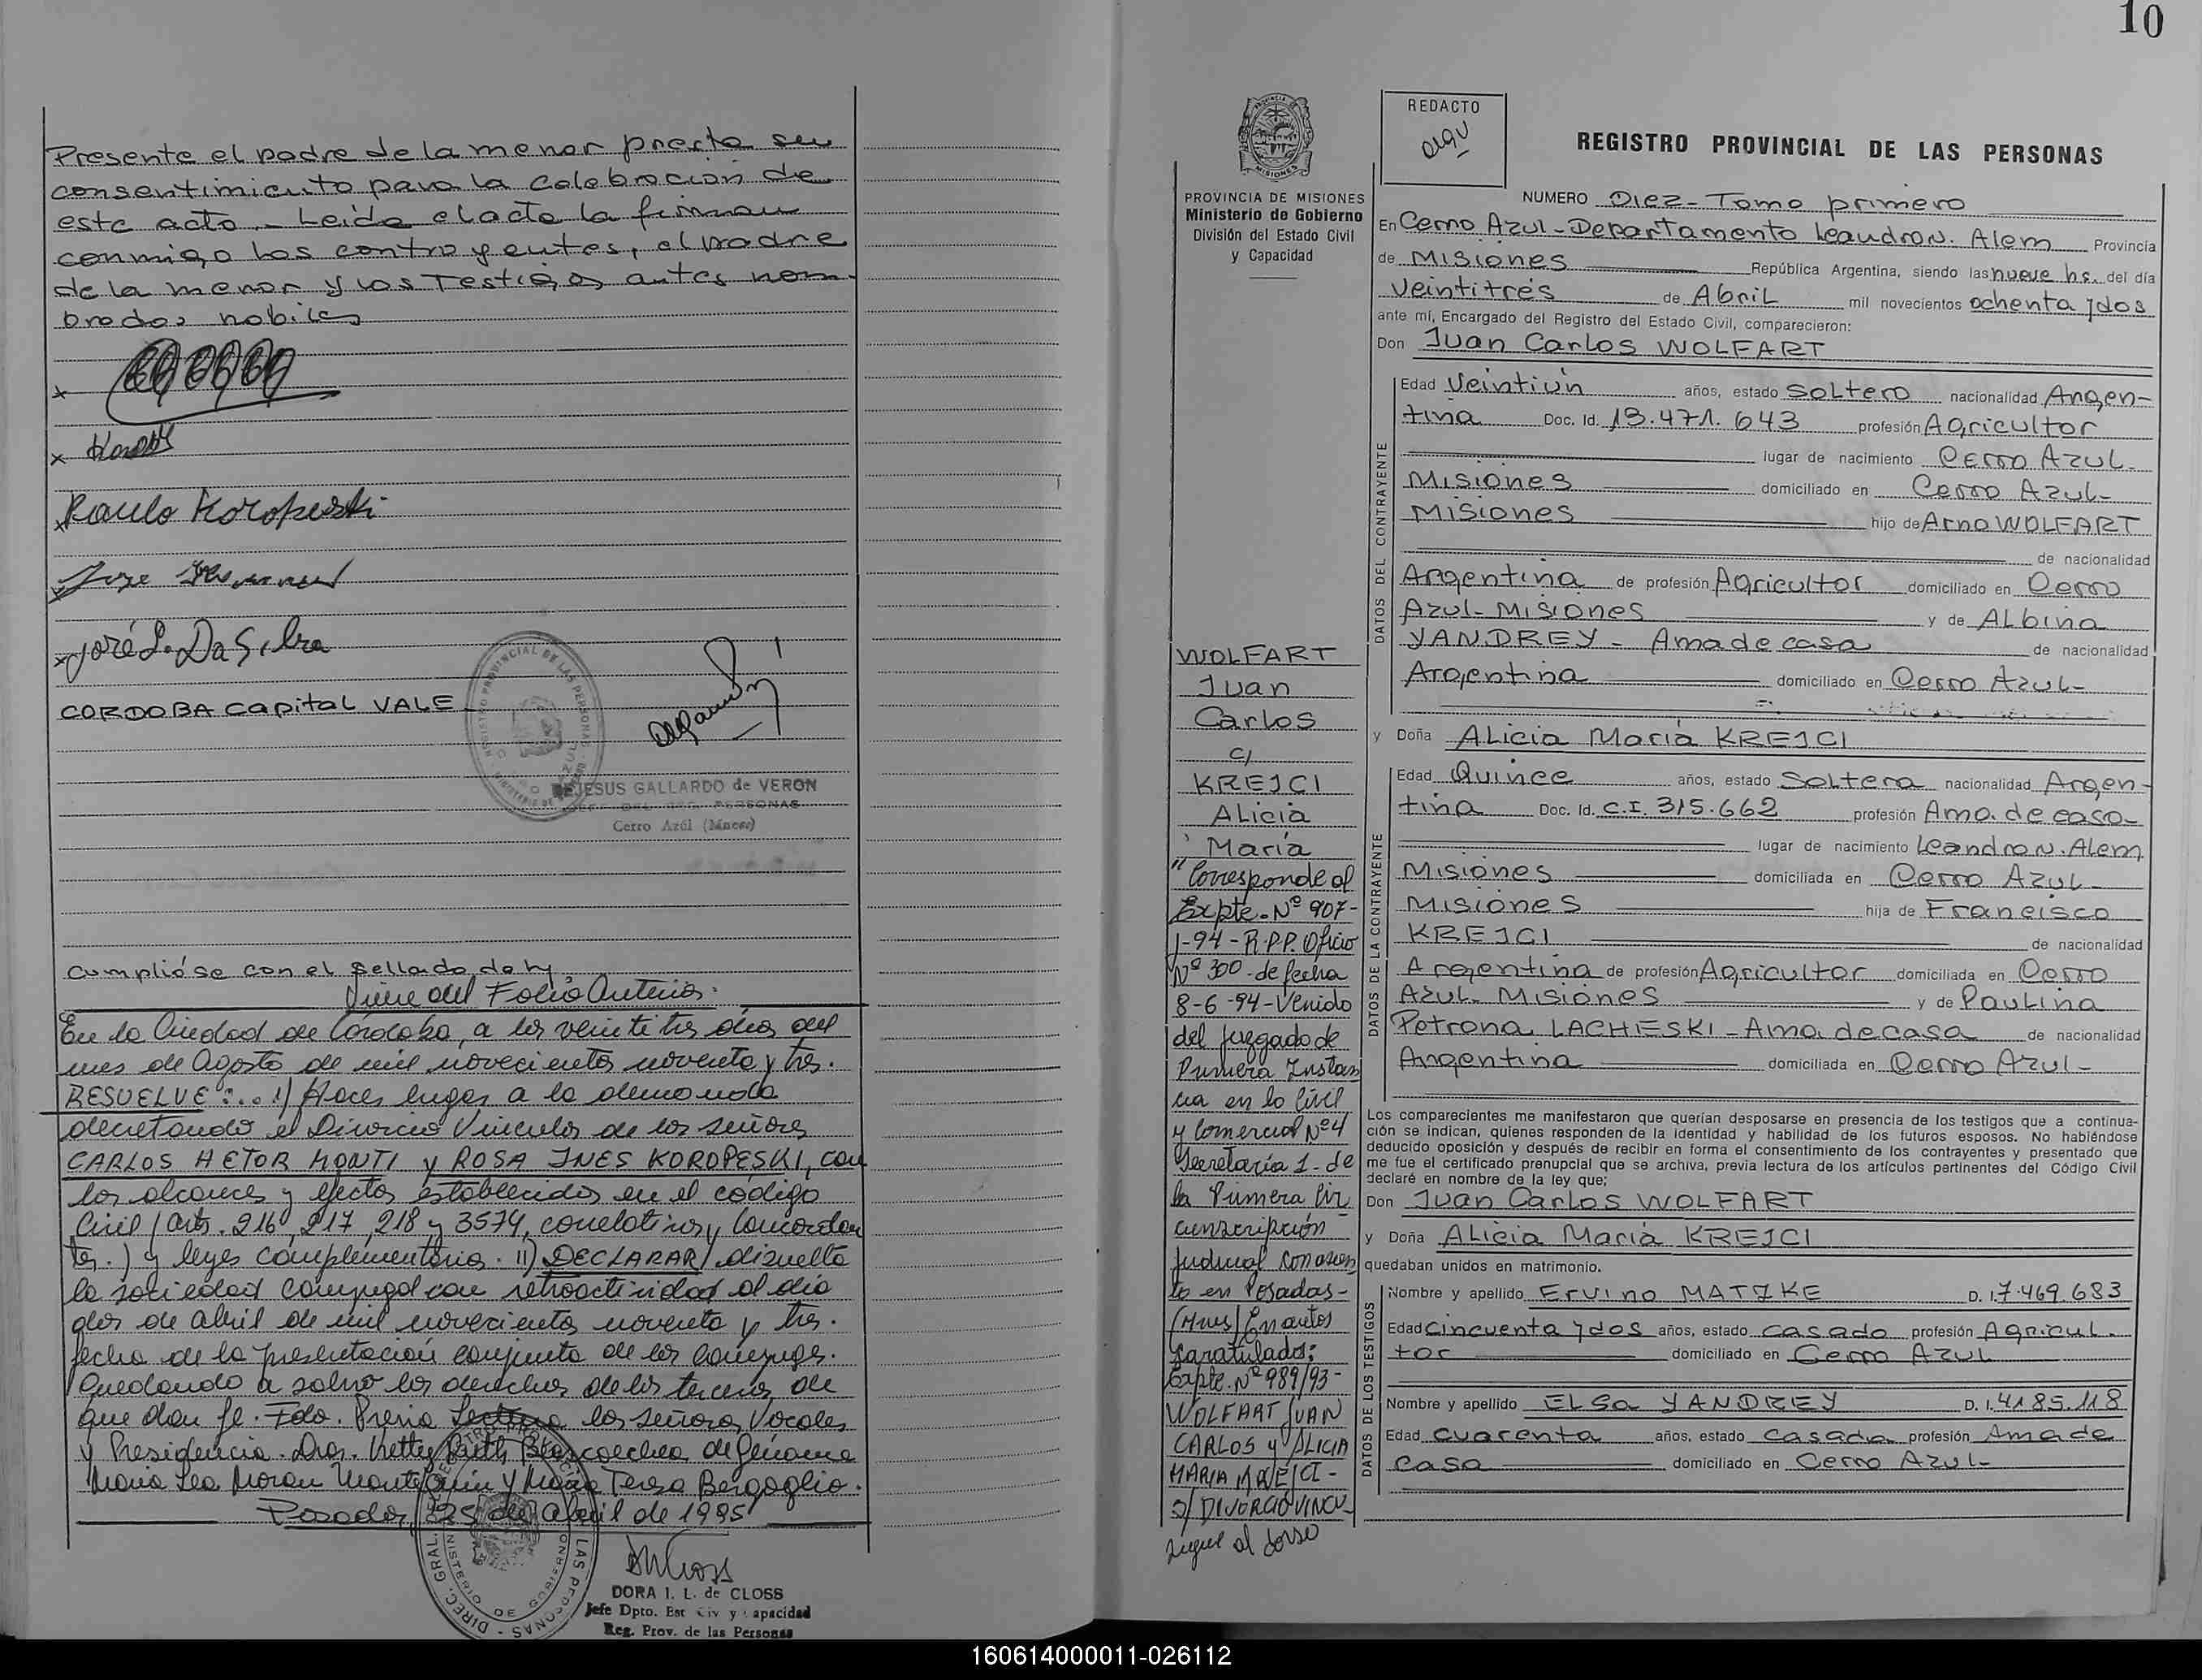 Presente el padre de la menor presta su
consentimiento para la celebracion de
este acto.- Leida el acta la firman
conmigo los contrayentes, el padre
de la menor y los Testigos antes nom-
brados habiles
x
x
x Paulo Koropeski
José L. Da Silva
CORDOBA Capital VALE
REGISTRO PROVINCIAL DE LAS PERSONAS
DE JESUS GALLARDO de VERON
JEFE DEL REG. PERSONAS
Cerro Azul (Mnes)
Cumplióse con el sellado de ley.
Viene del Folio Anterior.
En la Ciudad de Córdoba, a los veintitres dias del
mes de Agosto de mil novecientos noventa y tres.
RESUELVE:.. I) Hacer lugar a la demanda
decretando el Divorcio Vincular de los señores
CARLOS HETOR MONTI y ROSA INES KOROPESKI, con
los alcances y efectos establecidos en el código
Civil (arts. 216, 217, 218 y 3574, correlativos y concordan
tes.) y leyes complementarias. II) DECLARAR disuelta
la sociedad conyugal con retroactividad al día
dos de abril de mil novecientos noventa y tres.
fecha de la presentación conjunta de los cónyuges.
Quedando a salvo los derechos de los terceros, de
que dan fe. Fdo. Previa Lectura los señores Vocales
y Presidencia. Dras. Nelly Ruth de
Maria Lea Moran y Maria Teresa Bergoglio.
Posadas, 25 de Abril de 1995
DIREC. GRAL. LAS PERSONAS
DORA I. L. de CLOSS
Jefe Dpto. Est Civ y Capacidad
Reg. Prov. de las Personas
10
MISIONES
REDACTO
REGISTRO PROVINCIAL DE LAS PERSONAS
PROVINCIA DE MISIONES
Ministerio de Gobierno
División del Estado Civil
y Capacidad
NUMERO Diez-Tomo primero
En Cerro Azul-Departamento Leandro N. Alem Provincia
de Misiones República Argentina, siendo las nueve hs. del día
veintitrés de Abril mil novecientos ochenta y dos
ante mí, Encargado del Registro del Estado Civil, comparecieron:
Don Juan Carlos WOLFART
DATOS DEL CONTRAYENTE
Edad Veintiún años, estado Soltero nacionalidad Argen-
tina Doc. Id. 13.471.643 profesión Agricultor
lugar de nacimiento Cerro Azul-
Misiones domiciliado en Cerro Azul-
Misiones hijo de Arno WOLFART
de nacionalidad
Argentina de profesión Agricultor domiciliado en Cerro
Azul-Misiones y de Albina
YANDREY - Ama de casa de nacionalidad
Argentina domiciliado en Cerro Azul-
y Doña Alicia María KREJCI
DATOS DE LA CONTRAYENTE
Edad Quince años, estado Soltera nacionalidad Argen-
tina Doc. Id. C.I. 315.662 profesión Ama de casa-
lugar de nacimiento Leandro N. Alem
Misiones domiciliada en Cerro Azul-
Misiones hija de Francisco
KREJCI de nacionalidad
Argentina de profesión Agricultor domiciliada en Cerro
Azul-Misiones y de Paulina
Petrona LACHESKI-Ama de casa de nacionalidad
Argentina domiciliada en Cerro Azul-
Los comparecientes me manifestaron que querían desposarse en presencia de los testigos que a continua-
ción se indican, quienes responden de la identidad y habilidad de los futuros esposos. No habiéndose
deducido oposición y después de recibir en forma el consentimiento de los contrayentes y presentado que
me fue el certificado prenupcial que se archiva, previa lectura de los artículos pertinentes del Código Civil
declaré en nombre de la ley que:
Don Juan Carlos WOLFART
y Doña Alicia María KREJCI
quedaban unidos en matrimonio.
DATOS DE LOS TESTIGOS
Nombre y apellido Ervino MATZKE D. I. 7.469.683
Edad Cincuenta y dos años, estado casado profesión Agricul.
tor domiciliado en Cerro Azul
Nombre y apellido ELSa YANDREY D. I. 4.185.118
Edad Cuarenta años, estado Casada profesión Ama de
casa domiciliado en Cerro Azul-
WOLFART
Juan
Carlos
c/
KREJCI
Alicia
María
"Corresponde al
Expte. Nº 907-
J-94-R.P.P. Oficio
Nº 300-de fecha
8-6-94-Venido
del Juzgado de
Primera Instan
cia en lo Civil
y Comercial Nº4
Secretaría 1-de
la Primera Cir
cunscripción
Judicial con asien
to en Posadas-
(Mnes) En autos
caratulados:
Expte. Nº 989/93-
WOLFART JUAN
CARLOS y ALICIA
MARIA KREJCI-
S/ DIVORCIO VINCU-
sigue al dorso
160614000011-026112